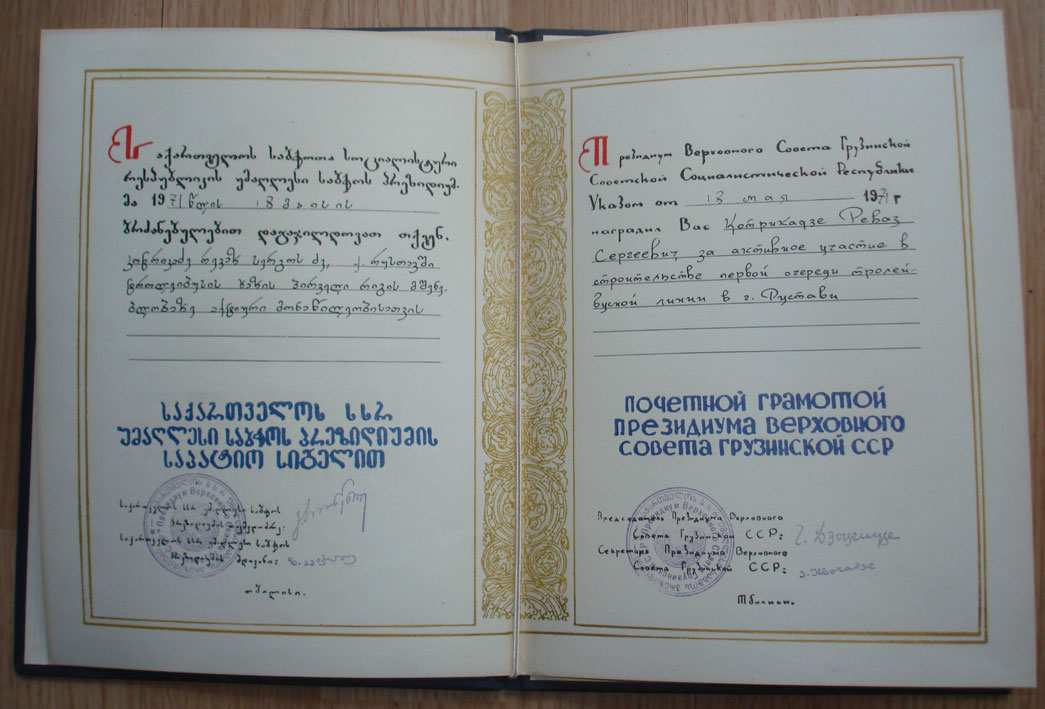 საქართველოს საბჭოთა სოციალისტური
რესპუბლიკის უმაღლესი საბჭოს პრეზიდიუმ-
მა 1971 წლის 18 მაისის
ბრძანებულებით დაგაჯილდოვათ თქვენ.
კოტრიკაძე რევაზ სერგოს ძე, ქ. რუსთავში
ტროლეიბუსის ხაზის პირველი რიგის მშენე-
ბლობაზე აქტიური მონაწილეობისათვის
საქართველოს სსრ
უმაღლესი საბჭოს პრეზიდიუმის
საპატიო სიგელით
საქართველოს სსრ უმაღლესი საბჭოს
პრეზიდიუმის თავმჯდომარე:
საქართველოს სსრ უმაღლესი საბჭოს
პრეზიდიუმის მდივანი:
თბილისი.
Президиум Верховного Совета Грузинской
Советской Социалистической Республики
Указом от 18 мая 1971 г
наградил Вас Котрикадзе Реваз
Сергеевич за активное участие в
строительстве первой очереди тролей-
бусной линии в г. Рустави
ПОЧЕТНОЙ ГРАМОТОЙ
ПРЕЗИДИУМА ВЕРХОВНОГО
СОВЕТА ГРУЗИНСКОЙ ССР
Председатель Президиума Верховного
Совета Грузинской ССР: Г. Дзоценидзе
Секретарь Президиума Верховного
Совета Грузинской ССР: З. Квачадзе
Тбилиси.